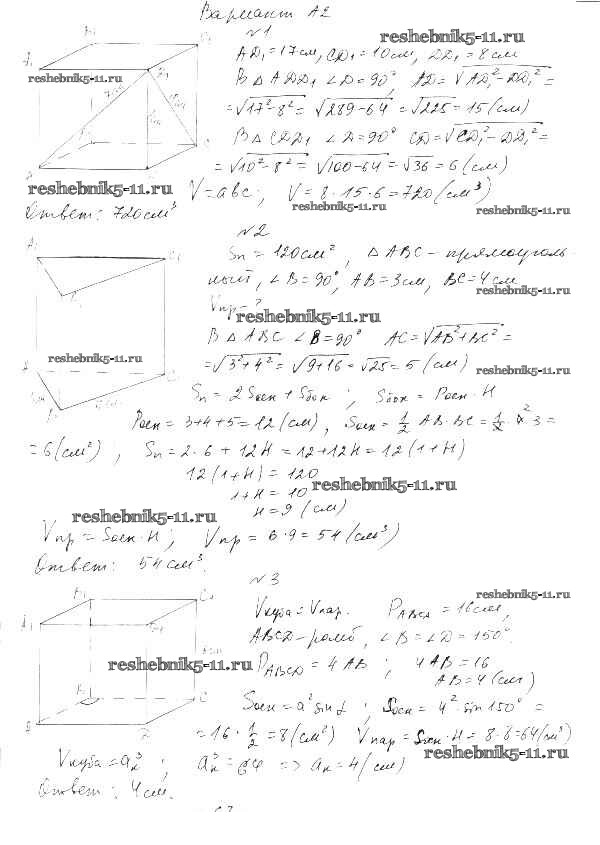 Вариант А2
reshebnik5-11.ru
№1
AD₁=17см, CD₁=10см, DD₁=8см
reshebnik5-11.ru
В △ADD₁ ∠D=90°, AD=√AD₁²-DD₁²=
=√17²-8²=√289-64=√225=15(см)
В △CDD₁ ∠D=90° CD=√CD₁²-DD₁²=
=√10²-8²=√100-64=√36=6(см)
reshebnik5-11.ru
V=abc; V=8·15·6=720(см³)
reshebnik5-11.ru
reshebnik5-11.ru
Ответ: 720см³
№2
Sп=120см², △ABC-прямоуголь-
ный, ∠B=90°, AB=3см, BC=4см
reshebnik5-11.ru
Vпр-?
reshebnik5-11.ru
В △ABC ∠B=90° AC=√AB²+BC²=
reshebnik5-11.ru
=√3²+4²=√9+16=√25=5(см)
reshebnik5-11.ru
Sп=2Sосн+Sбок; Sбок=Pосн·H
Pосн=3+4+5=12(см), Sосн=1/2 AB·BC=1/2·4·3=
=6(см²); Sп=2·6+12H=12+12H=12(1+H)
12(1+H)=120
1+H=10
reshebnik5-11.ru
H=9(см)
reshebnik5-11.ru
Vпр=Sосн·H; Vпр=6·9=54(см³)
Ответ: 54см³.
№3
reshebnik5-11.ru
Vкуба=Vпар. PABCD=16см,
ABCD-ромб, ∠B=∠D=150°.
reshebnik5-11.ru
PABCD=4AB; 4AB=16
AB=4(см)
Sосн=a²sinα; Sосн=4²·sin150°=
=16·1/2=8(см²) Vпар=Sосн·H=8·8=64(см³)
reshebnik5-11.ru
Vкуба=aк³; aк³=64 => aк=4(см)
Ответ: 4см.